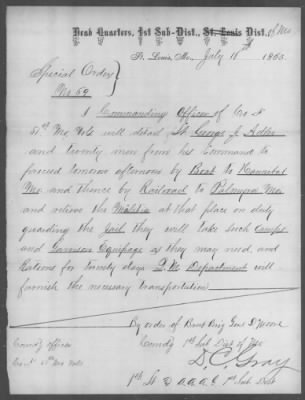 Head Quarters, 1st Sub-Dist., St. Louis Dist. of Mo
St. Louis, Mo., July 18th 1865.
Special Order
No 59
1 Commanding Officer of Co F
51st Mo Vols will detail Lt. George J. Adler
and twenty men from his Command to
proceed tomorrow afternoon by Boat to Hannibal
Mo and thence by Railroad to Palmyra Mo
and relieve the Militia at that place on duty
guarding the jail they will take such Camp
and Garrison Equipage as they may need, and
Rations for Twenty days Q. M. Department will
furnish the necessary transportation
By order of Brevt Brig Genl Moore
Comdg Officer
Comdg 1st Sub Dist of Mo
Co F 51st Mo Vols
D. C. Gray
1st Lt & A A A G 1st Sub Dist